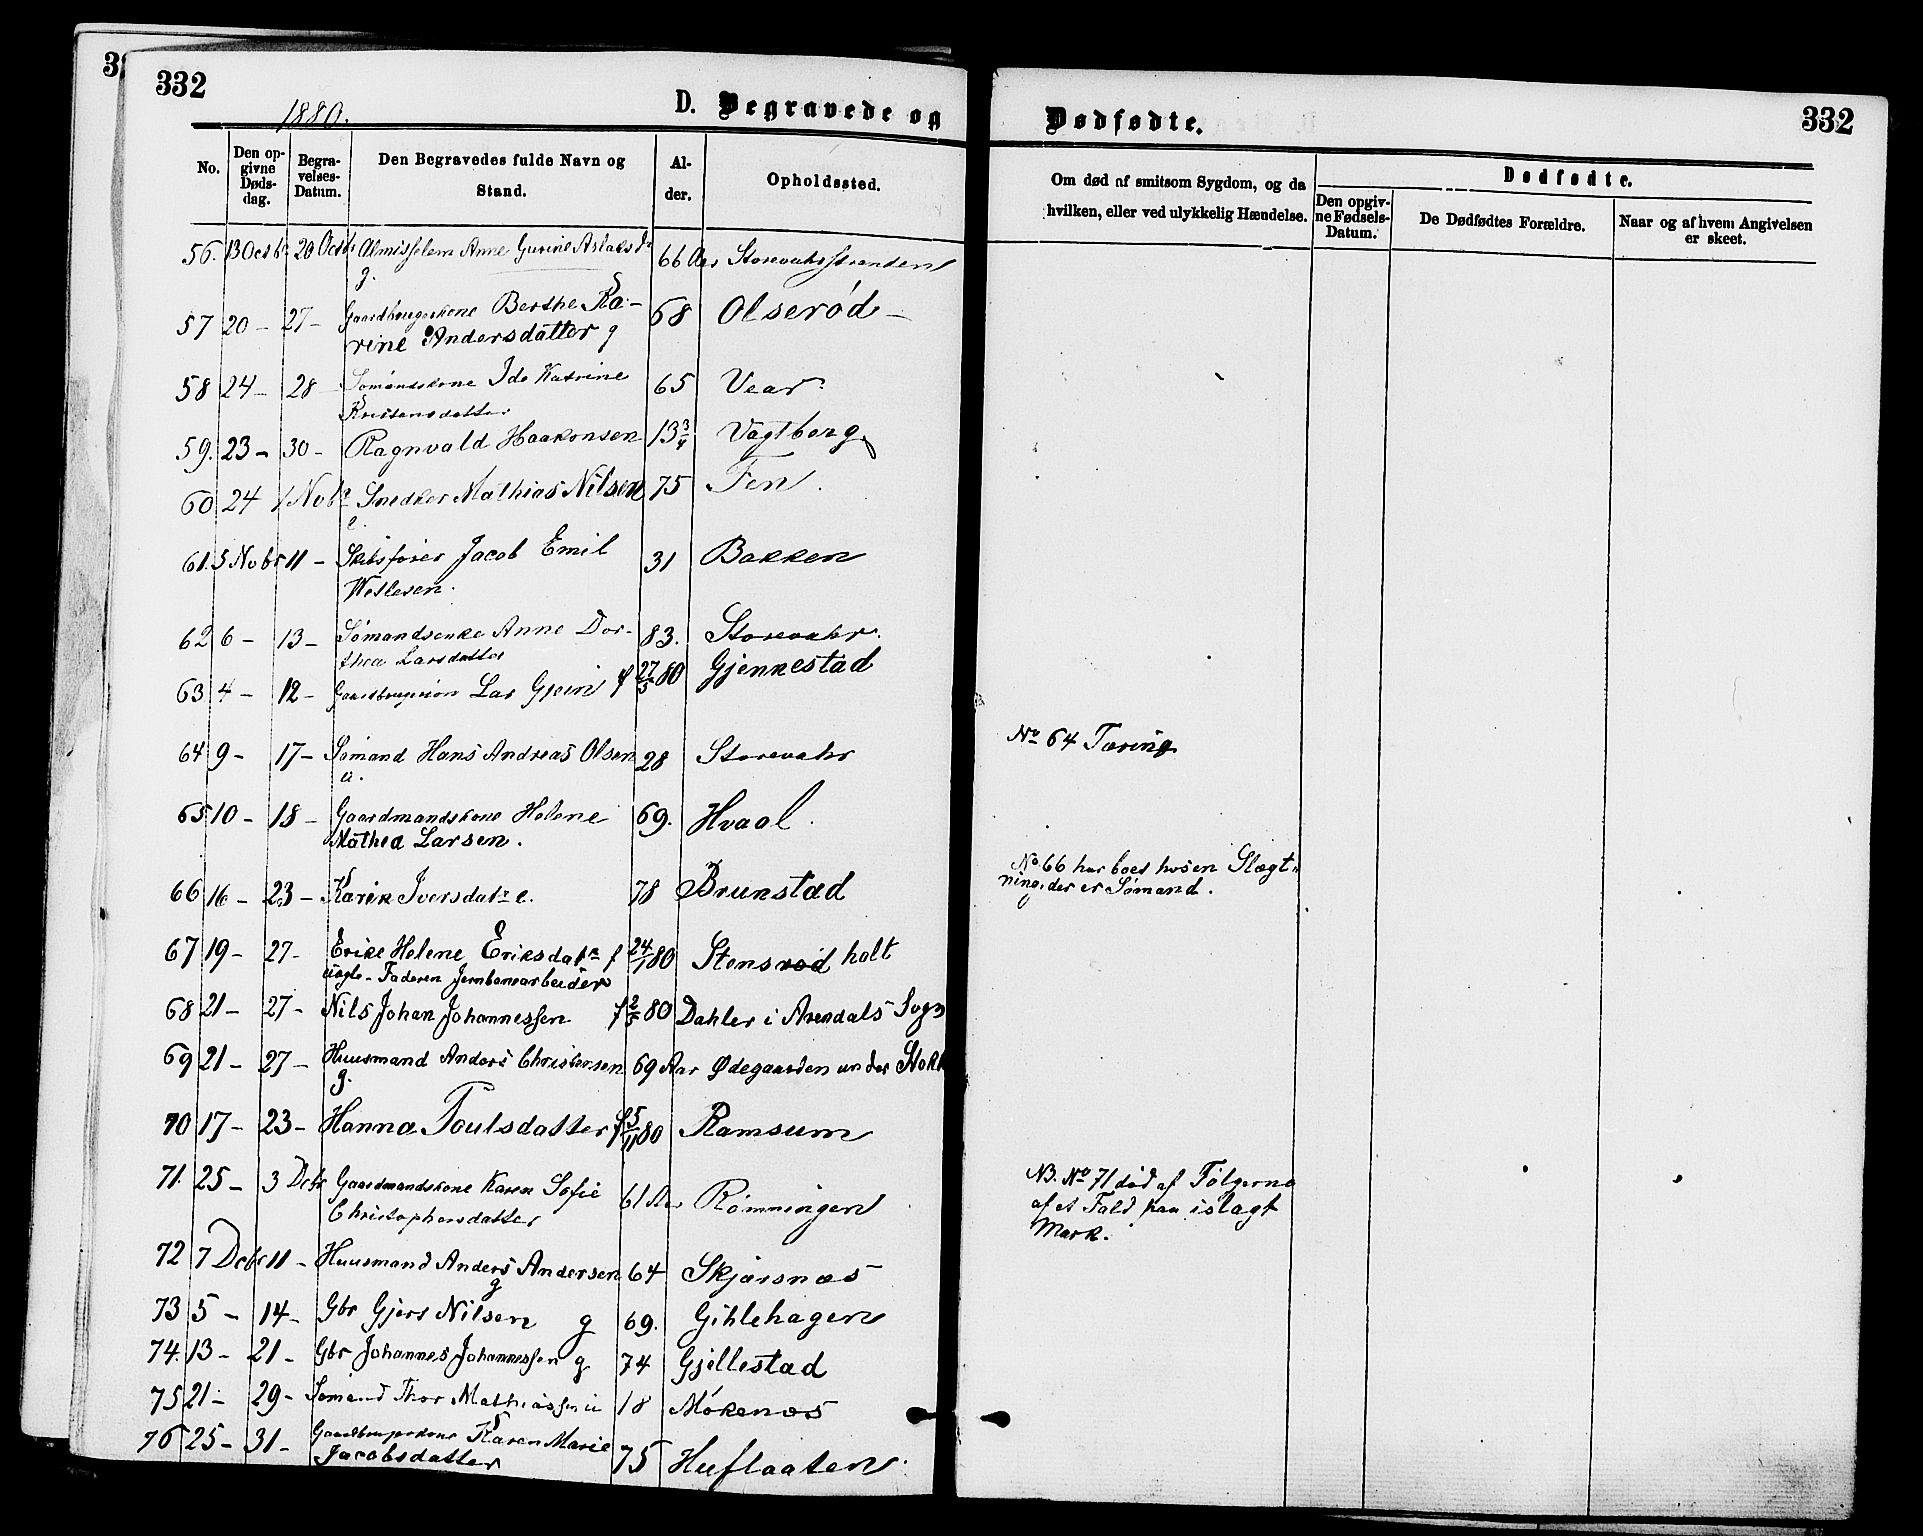 332
1880.
D. Begravede og
No.
Den op-
givne
Døds-
dag.
Begra-
velses-
Datum.
Den Begravedes fulde Navn og
Stand.
Al-
der.
Opholdssted.
56. 13 Octbr 20 Octbr Almisselem Anne Gurine Aslaksdr 66 Aar Storevahrstranden
g.
57 20 - 27 - Gaardbrugerkone Berthe Ka- 68 Olserød -
rine Andersdatter g
58 24 - 28 - Sømandskone Ida Katrine 65 Vear
Kristensdatter
59. 23 - 30 - Ragnvald Haakonsen 13 3/4 Vagtborg
60 24 1 Nobr Snedker Mathias Nilsen 75 Fen.
e.
61. 5 Nobr 11 - Skibsfører Jacob Emil 31 Bakken
Wetlesen.
62 6 - 13 - Sømandsenke Anne Dor- 83. Storevahr.
thea Larsdatter
63 4 - 12 - Lar Gjein f 27/5 80 Gjennestad
64 9 - 17 - Sømand Hans Andreas Olsen 28 Storevahr
u.
65 10 - 18 - Gaardmandskone Helene 69. Hvaal.
Mathea Larsen.
66 16 - 23 - Karen Iversdatr e. 78 Brunstad
67 19 - 27 - Helene Eriksdatr f 24/1 80 Stensrød holt
uægte - Faderen Jernbanearbeider
68 21 - 27 - Nils Johan Johannessen f 2/5 80 Dahler i Arendals Sogn
69 21 - 27 - Huusmand Anders Christensen 69 Aar Ødegaarden under Stokk
g.
70 17 - 23 - Hanna Poulsdatter f 5/11 80 Ramsum
71. 25 - 3 Debr Gaardmandskone Karen Sofie 61 Aar Rømningen
Christophersdatter
72 7 Debr 11 - Huusmand Anders Andersen 64 Skjærsnæs
g
73 5 - 14 - Gbr Gjers Nilsen g 69. Gihlehagen
74. 13 - 21 - Gbr Johannes Johannessen g 74 Gjellestad
75 21 - 29 - Sømand Thor Mathiassen u 18 Møkenæs
76 25 - 31 - Gaardbrugerkone Karen Marie 75 Huflaaten
Jacobsdatter
Dødfødte.
332
Om død af smitsom Sygdom, og da
hvilken, eller ved ulykkelig Hændelse.
Dødfødte.
Den opgiv-
ne Fødsels-
Datum.
De Dødfødtes Forældre.
Naar og af hvem Angivelsen
er skeet.
No 64 Tæring
No 66 har boet hos en Slægt-
ning, der er Sømand.
NB. No 71 død af Følgerne
af et Fald paa islagt
Mark.